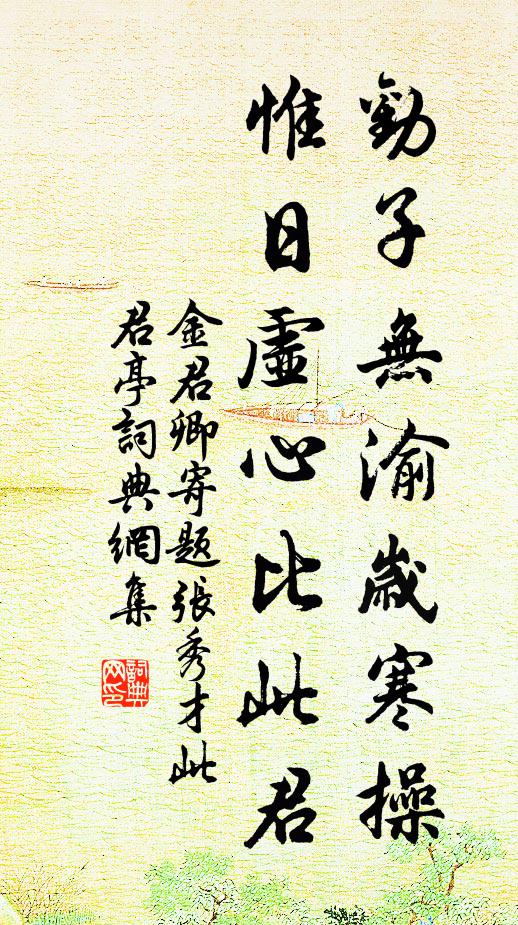 勸子無渝歲寒操
惟日虛心比此君
金君卿寄題張秀才此
君亭詞典網集
詞典
网印